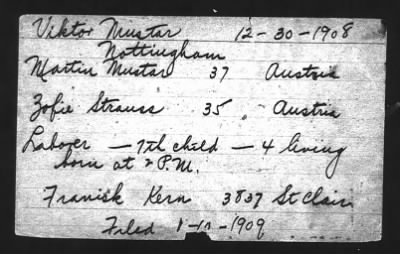 Viktor Mustar 12-30-1908
Nottingham
Martin Mustar 37 Austria
Zofie Strauss 35 Austria
Laborer — 7th child — 4 living
born at 2 P.M.
Franisk Kern 3837 St Clair
Filed 1-11-1909